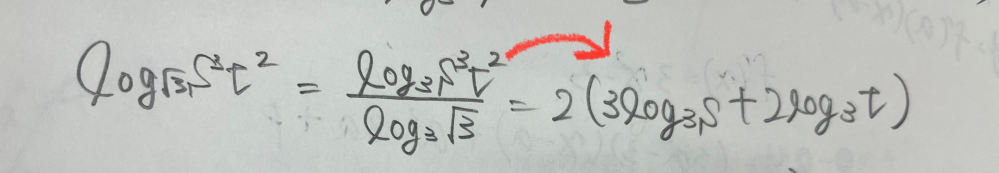 log_{√3} s³t² = \frac{log₃ s³t²}{log₃ √3} = 2(3log₃ s + 2log₃ t)